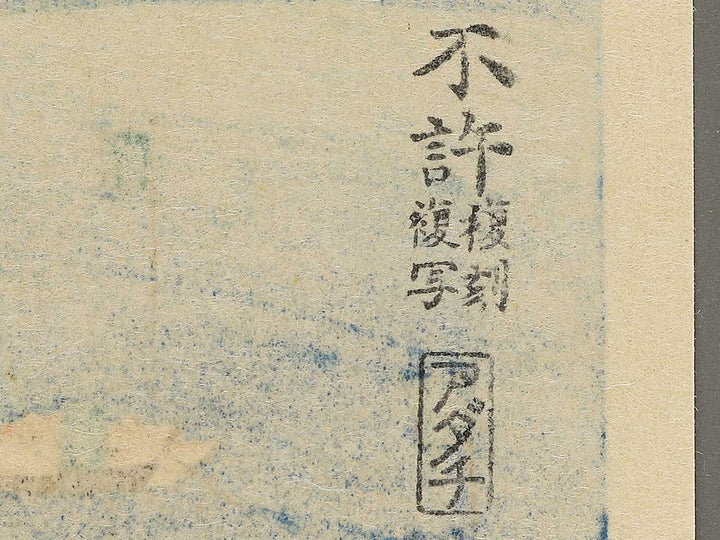 不許
復刻
複写
アダチ